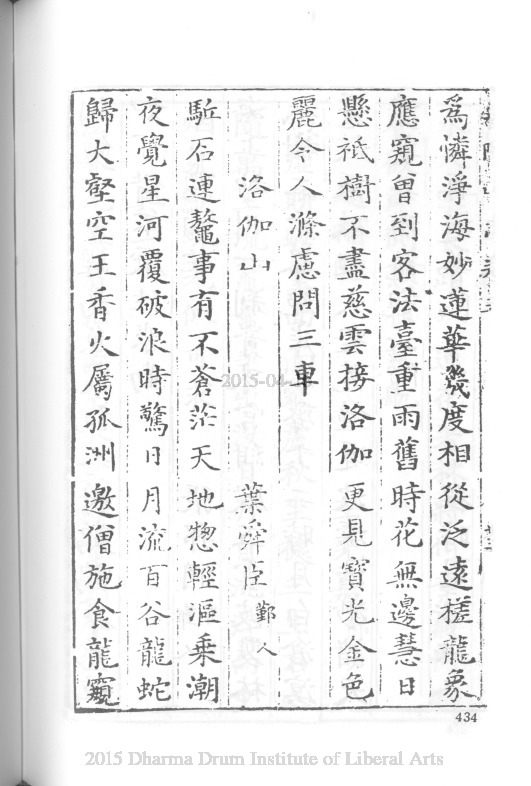 為憐淨海妙蓮華幾度相從泛遠槎龍象
應窺曾到客法臺重雨舊時花無邊慧日
懸祇樹不盡慈雲接洛伽更見寶光金色
麗令人滌慮問三車
洛伽山 葉舜臣 鄞人
駈石連鼇事有不蒼茫天地惣輕漚乗潮
夜覺星河覆破浪時驚日月流百谷龍蛇
歸大壑空王香火屬孤洲邀僧施食龍窺
434
2015-04-
2015 Dharma Drum Institute of Liberal Arts